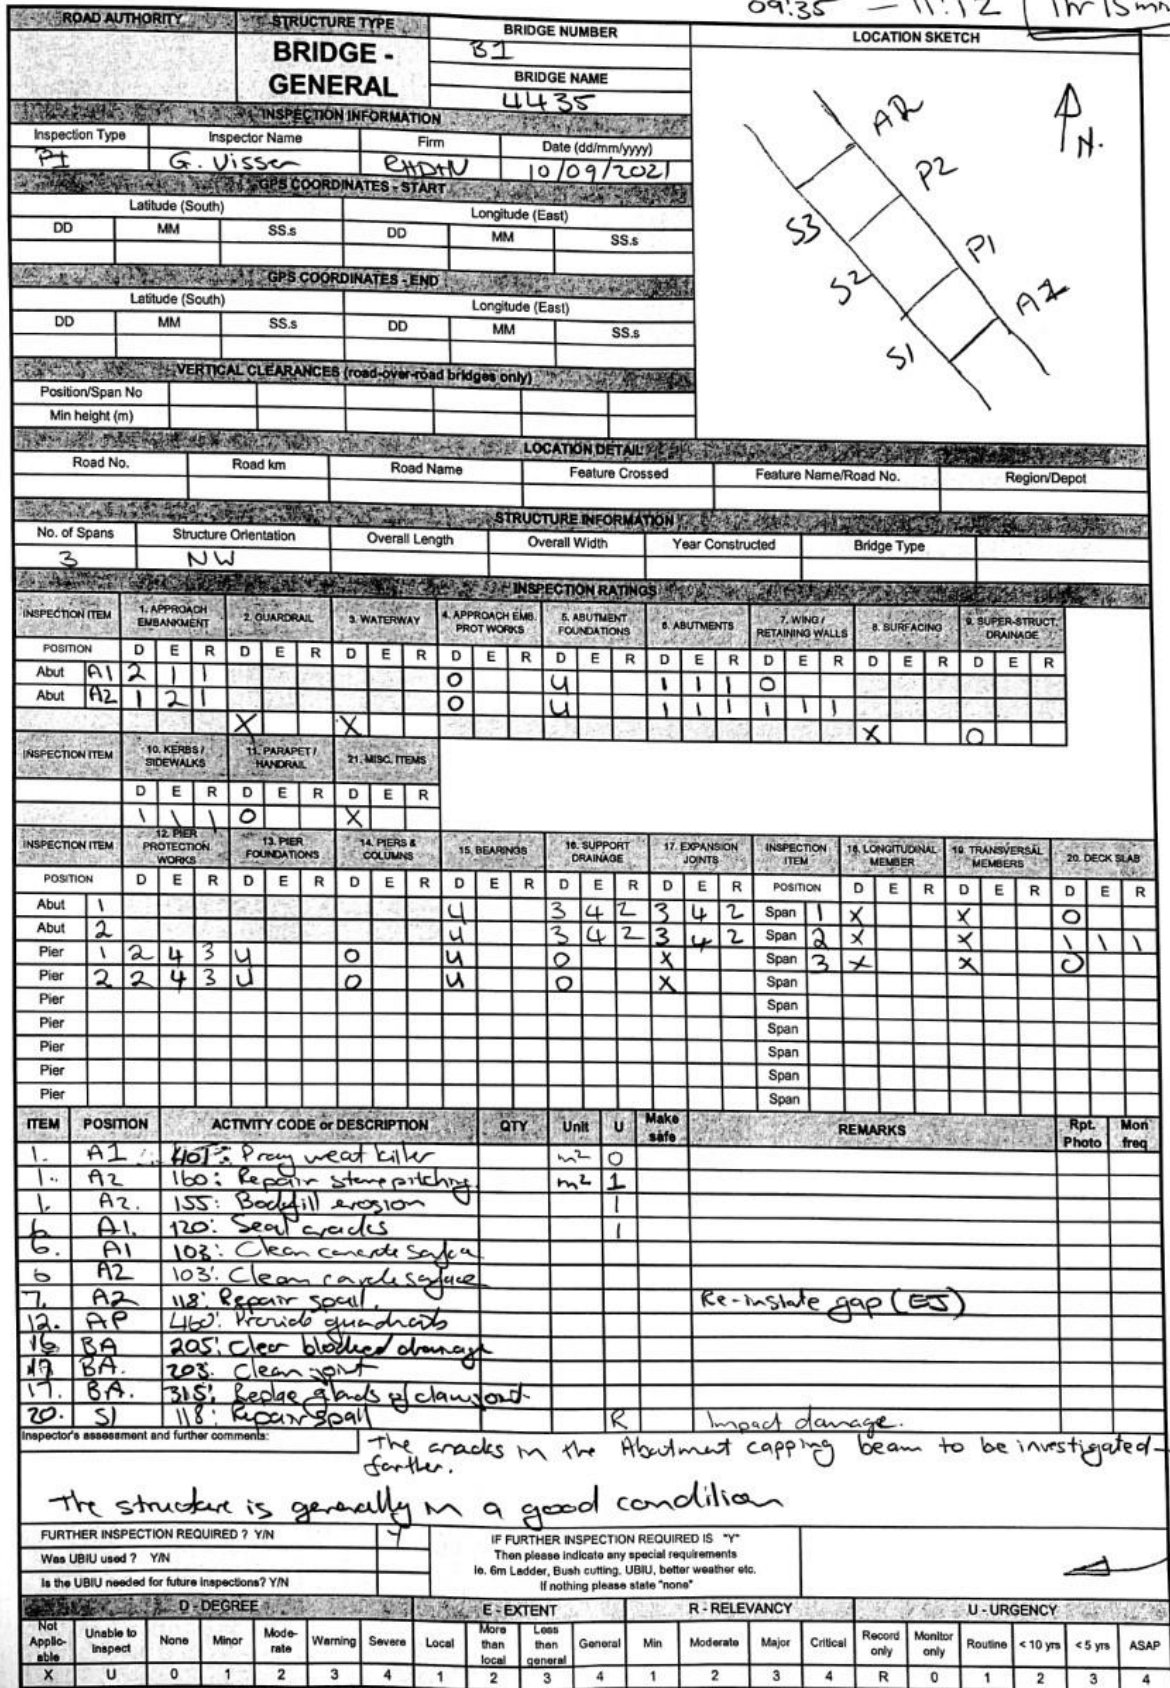 09:35 - 11:12 1hr 15min
ROAD AUTHORITY STRUCTURE TYPE BRIDGE NUMBER LOCATION SKETCH
BRIDGE - GENERAL B1
BRIDGE NAME
4435
INSPECTION INFORMATION
Inspection Type Inspector Name Firm Date (dd/mm/yyyy)
PI G. Visser RHDHV 10/09/2021
GPS COORDINATES - START
Latitude (South) Longitude (East)
DD MM SS.s DD MM SS.s
GPS COORDINATES - END
Latitude (South) Longitude (East)
DD MM SS.s DD MM SS.s
VERTICAL CLEARANCES (road-over-road bridges only)
Position/Span No
Min height (m)
A2 P2 P1 A1
S3 S2 S1
N.
LOCATION DETAIL
Road No. Road km Road Name Feature Crossed Feature Name/Road No. Region/Depot
STRUCTURE INFORMATION
No. of Spans Structure Orientation Overall Length Overall Width Year Constructed Bridge Type
3 NW
INSPECTION RATINGS
INSPECTION ITEM 1. APPROACH EMBANKMENT 2. GUARDRAIL 3. WATERWAY 4. APPROACH EMB. PROT WORKS 5. ABUTMENT FOUNDATIONS 6. ABUTMENTS 7. WING / RETAINING WALLS 8. SURFACING 9. SUPER-STRUCT. DRAINAGE
POSITION D E R D E R D E R D E R D E R D E R D E R D E R D E R
Abut A1 2 1 1 0 U 1 1 1 0
Abut A2 1 2 1 0 U 1 1 1 1 1 1
X X X 0
INSPECTION ITEM 10. KERBS / SIDEWALKS 11. PARAPET / HANDRAIL 21. MISC. ITEMS
D E R D E R D E R
1 1 1 0 X
INSPECTION ITEM 12. PIER PROTECTION WORKS 13. PIER FOUNDATIONS 14. PIERS & COLUMNS 15. BEARINGS 16. SUPPORT DRAINAGE 17. EXPANSION JOINTS INSPECTION ITEM 18. LONGITUDINAL MEMBER 19. TRANSVERSAL MEMBERS 20. DECK SLAB
POSITION D E R D E R D E R D E R D E R D E R POSITION D E R D E R D E R
Abut 1 U 3 4 2 3 4 2 Span 1 X X 0
Abut 2 U 3 4 2 3 4 2 Span 2 X X 1 1 1
Pier 1 2 4 3 U 0 U 0 X Span 3 X X 0
Pier 2 2 4 3 U 0 U 0 X Span
Pier Span
Pier Span
Pier Span
Pier Span
Pier Span
ITEM POSITION ACTIVITY CODE or DESCRIPTION QTY Unit U Make safe REMARKS Rpt. Photo Mon freq
1. A1 401: Pray weat killer m² 0
1. A2 160: Repair stone pitching. m² 1
1. A2. 155: Backfill erosion 1
6 A1. 120: Seal cracks 1
6. A1 103: Clean concrete surface
6 A2 103: Clean concrete surface
7. A2 118: Repair spall. Re-instate gap (EJ)
12. AP 460: Provide guardrails
16 BA 205: Clear blocked drainage
17 BA. 203: Clean joint
17. BA. 315: Replace glands of claw joint.
20. S1 118: Repair spall R Impact damage.
Inspector's assessment and further comments: The cracks in the Abutment capping beam to be investigated
further.
The structure is generally in a good condition
FURTHER INSPECTION REQUIRED ? Y/N Y
Was UBIU used ? Y/N
Is the UBIU needed for future inspections? Y/N
IF FURTHER INSPECTION REQUIRED IS "Y"
Then please indicate any special requirements
ie. 6m Ladder, Bush cutting, UBIU, better weather etc.
If nothing please state "none"
D - DEGREE E - EXTENT R - RELEVANCY U - URGENCY
Not Applic-able Unable to Inspect None Minor Mode-rate Warning Severe Local More than local Less than general General Min Moderate Major Critical Record only Monitor only Routine < 10 yrs < 5 yrs ASAP
X U 0 1 2 3 4 1 2 3 4 1 2 3 4 R 0 1 2 3 4